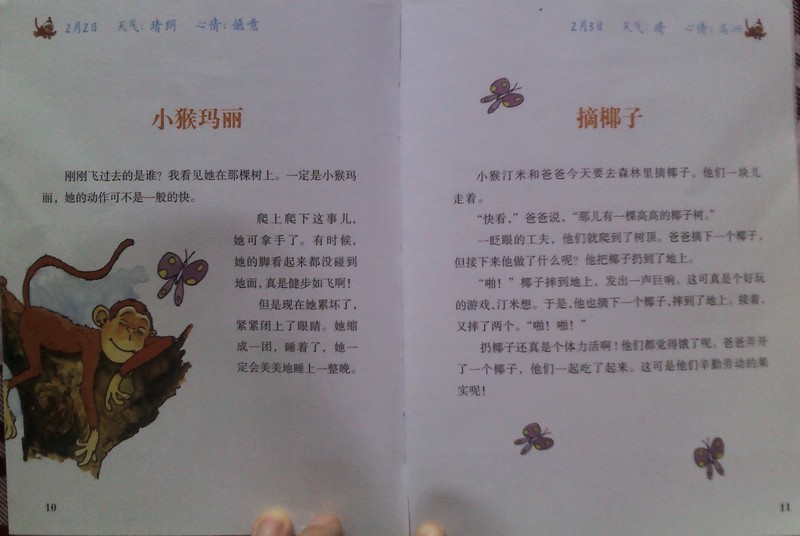 2月2日 天气：晴阴 心情：惬意
小猴玛丽
刚刚飞过去的是谁？我看见她在那棵树上。一定是小猴玛
丽，她的动作可不是一般的快。
爬上爬下这事儿，
她可拿手了。有时候，
她的脚看起来都没碰到
地面，真是健步如飞啊！
但是现在她累坏了，
紧紧闭上了眼睛。她缩
成一团，睡着了，她一
定会美美地睡上一整晚。
10
2月3日 天气：晴 心情：
摘椰子
小猴汀米和爸爸今天要去森林里摘椰子。他们一块儿
走着。
“快看，”爸爸说，“那儿有一棵高高的椰子树。”
一眨眼的工夫，他们就爬到了树顶。爸爸摘下一个椰子，
但接下来他做了什么呢？他把椰子扔到了地上。
“啪！”椰子摔到地上，发出一声巨响。这可真是个好玩
的游戏，汀米想。于是，他也摘下一个椰子，摔到了地上。接着，
又摔了两个。“啪！啪！”
扔椰子还真是个体力活啊！他们都觉得饿了呢。爸爸弄开
了一个椰子，他们一起吃了起来。这可是他们辛勤劳动的果
实呢！
11